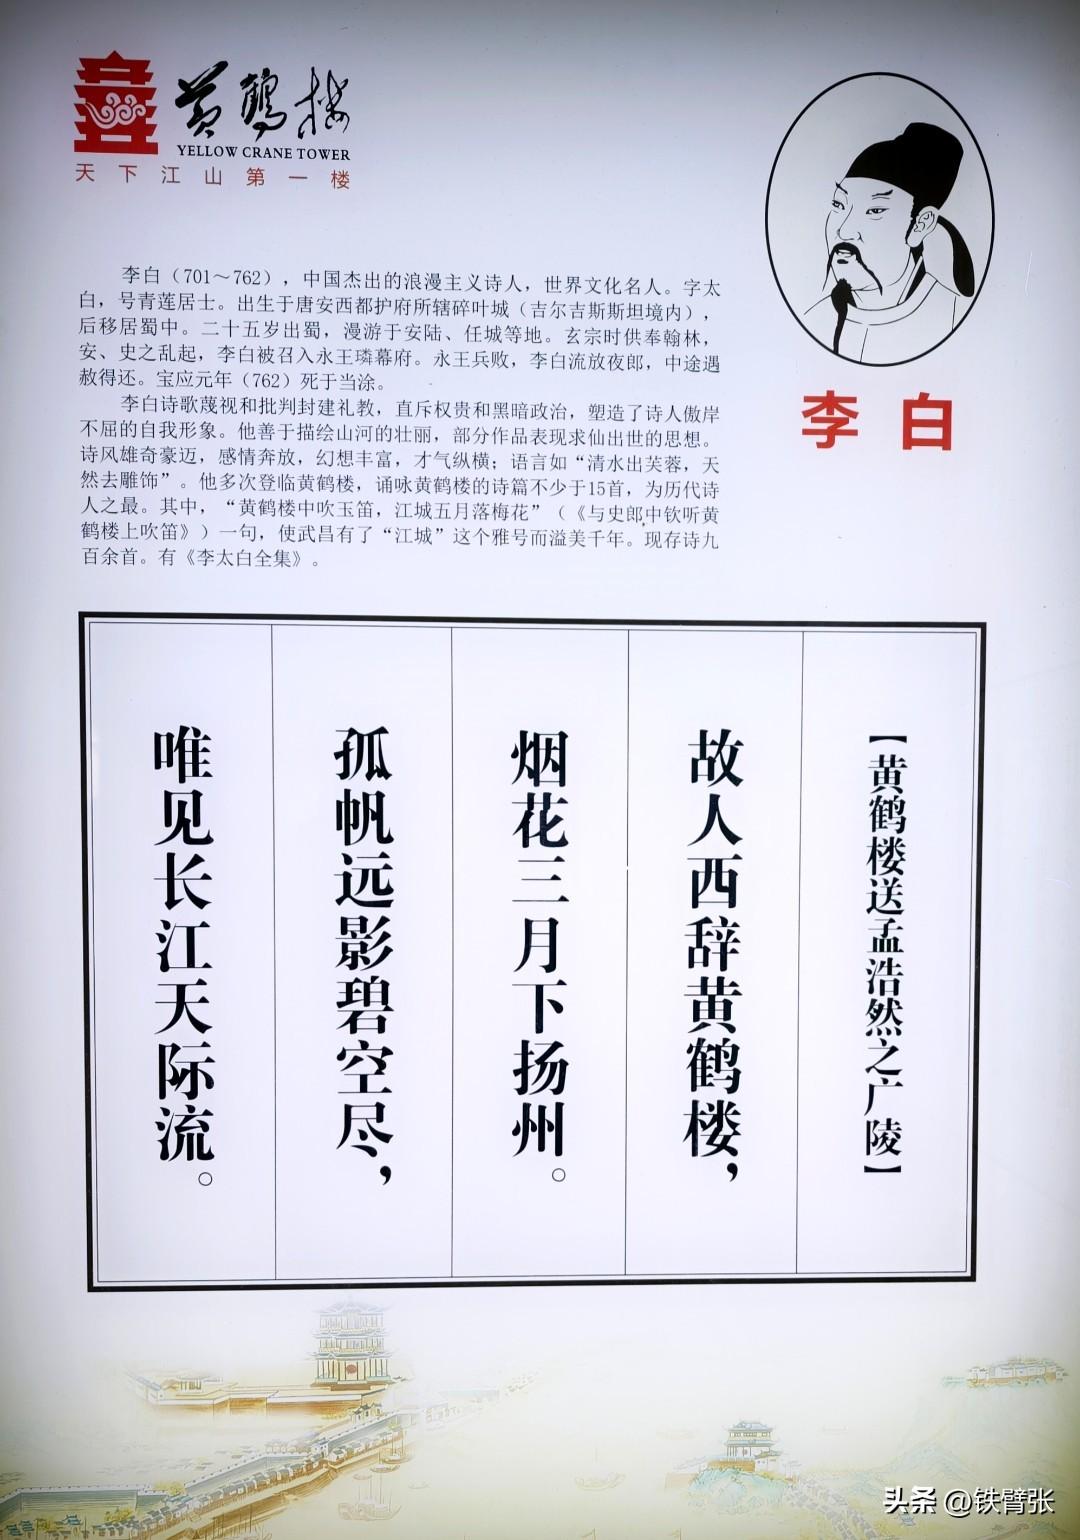 黄鹤楼
YELLOW CRANE TOWER
天下江山第一楼
李白（701～762），中国杰出的浪漫主义诗人，世界文化名人。字太
白，号青莲居士。出生于唐安西都护府所辖碎叶城（吉尔吉斯斯坦境内），
后移居蜀中。二十五岁出蜀，漫游于安陆、任城等地。玄宗时供奉翰林，
安、史之乱起，李白被召入永王璘幕府。永王兵败，李白流放夜郎，中途遇
赦得还。宝应元年（762）死于当涂。
李白诗歌蔑视和批判封建礼教，直斥权贵和黑暗政治，塑造了诗人傲岸
不屈的自我形象。他善于描绘山河的壮丽，部分作品表现求仙出世的思想。
诗风雄奇豪迈，感情奔放，幻想丰富，才气纵横；语言如“清水出芙蓉，天
然去雕饰”。他多次登临黄鹤楼，诵咏黄鹤楼的诗篇不少于15首，为历代诗
人之最。其中，“黄鹤楼中吹玉笛，江城五月落梅花”（《与史郎中钦听黄
鹤楼上吹笛》）一句，使武昌有了“江城”这个雅号而溢美千年。现存诗九
百余首。有《李太白全集》。
李白
【黄鹤楼送孟浩然之广陵】
故人西辞黄鹤楼，
烟花三月下扬州。
孤帆远影碧空尽，
唯见长江天际流。
头条 @铁臂张